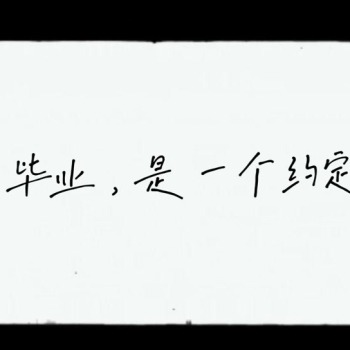 毕业，是一个约定